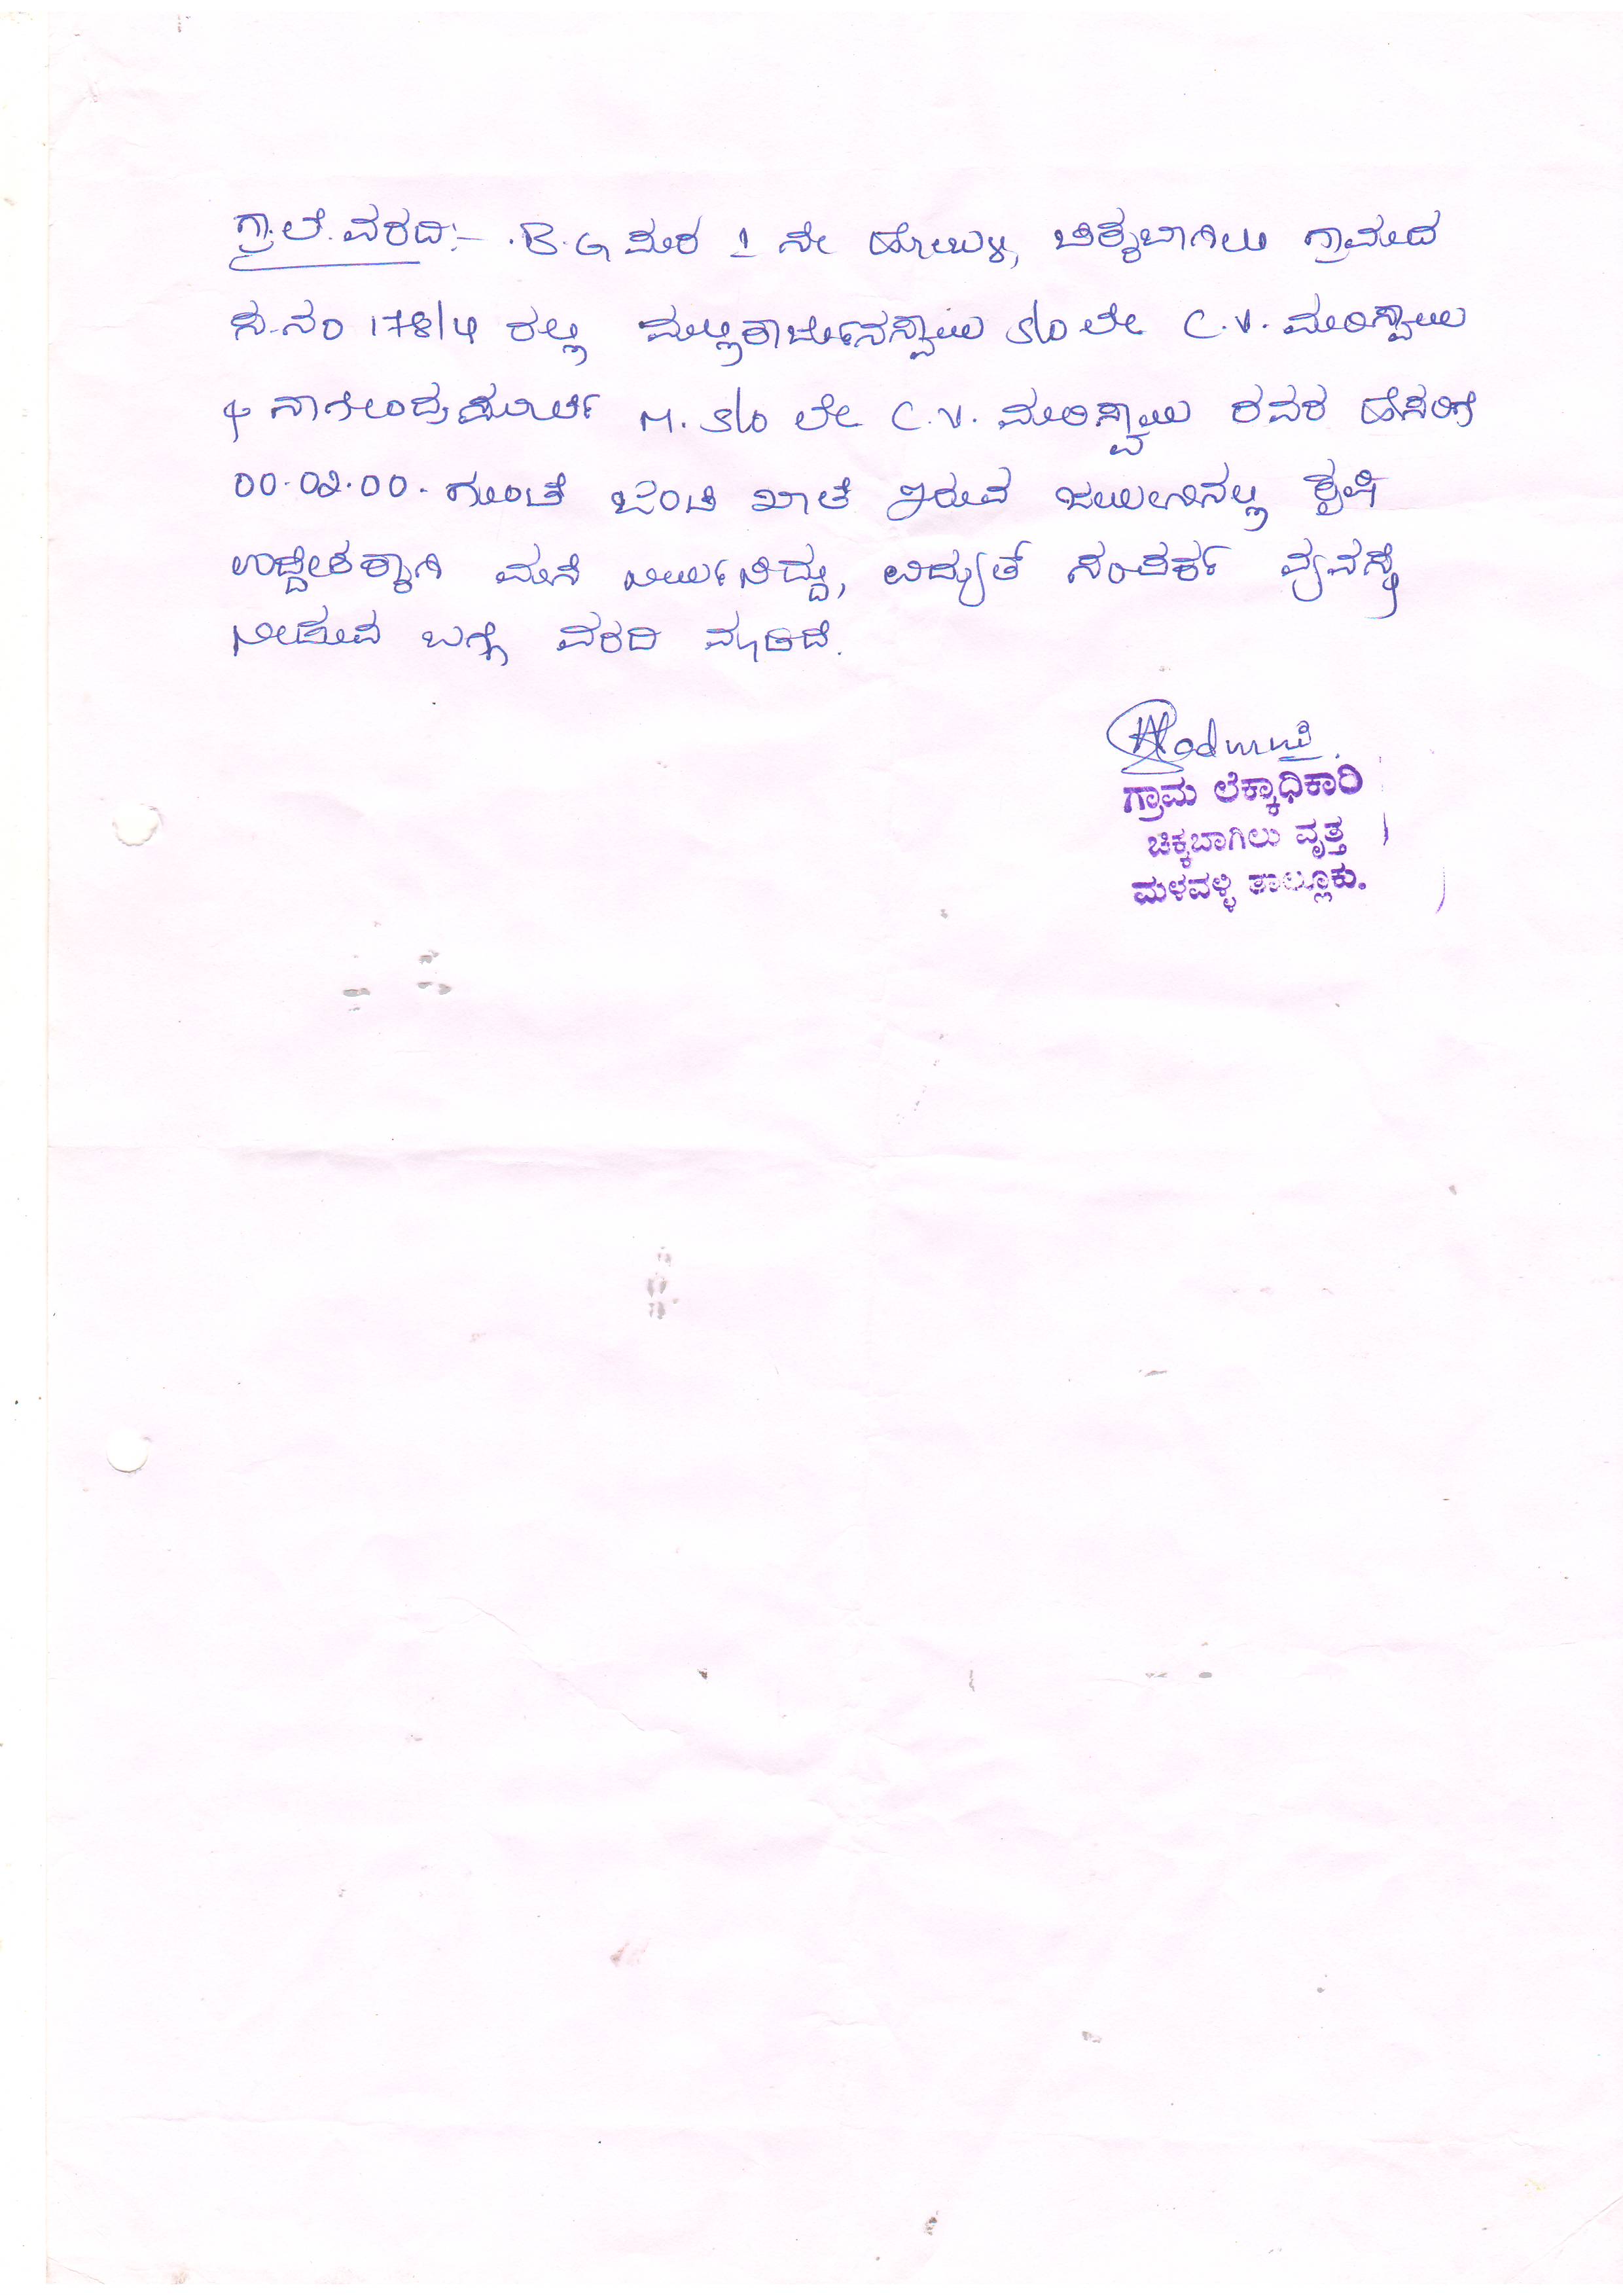 ಗ್ರಾ.ಲೆ. ವರದಿ:- .B.G ಪುರ 1 ನೇ ಹೋಬಳಿ, ಚಿಕ್ಕಬಾಗಿಲು ಗ್ರಾಮದ
ಸ.ನಂ 178/4 ರಲ್ಲಿ ಮಲ್ಲಿಕಾರ್ಜುನಸ್ವಾಮಿ S/o ಲೇ C.V. ಮರಿಸ್ವಾಮಿ
& ನಾಗೇಂದ್ರಮೂರ್ತಿ M. S/o ಲೇ C.V. ಮರಿಸ್ವಾಮಿ ರವರ ಹೆಸರಿಗೆ
00.02.00. ಗುಂಟೆ ಜಂಟಿ ಖಾತೆ ಇರುವ ಜಮೀನಿನಲ್ಲಿ ಕೃಷಿ
ಉದ್ದೇಶಕ್ಕಾಗಿ ಮನೆ ನಿರ್ಮಿಸಿದ್ದು, ವಿದ್ಯುತ್ ಸಂಪರ್ಕ ವ್ಯವಸ್ಥೆ
ನೀಡುವ ಬಗ್ಗೆ ವರದಿ ಮಾಡಿದೆ.
ಗ್ರಾಮ ಲೆಕ್ಕಾಧಿಕಾರಿ
ಚಿಕ್ಕಬಾಗಿಲು ವೃತ್ತ
ಮಳವಳ್ಳಿ ತಾಲ್ಲೂಕು.